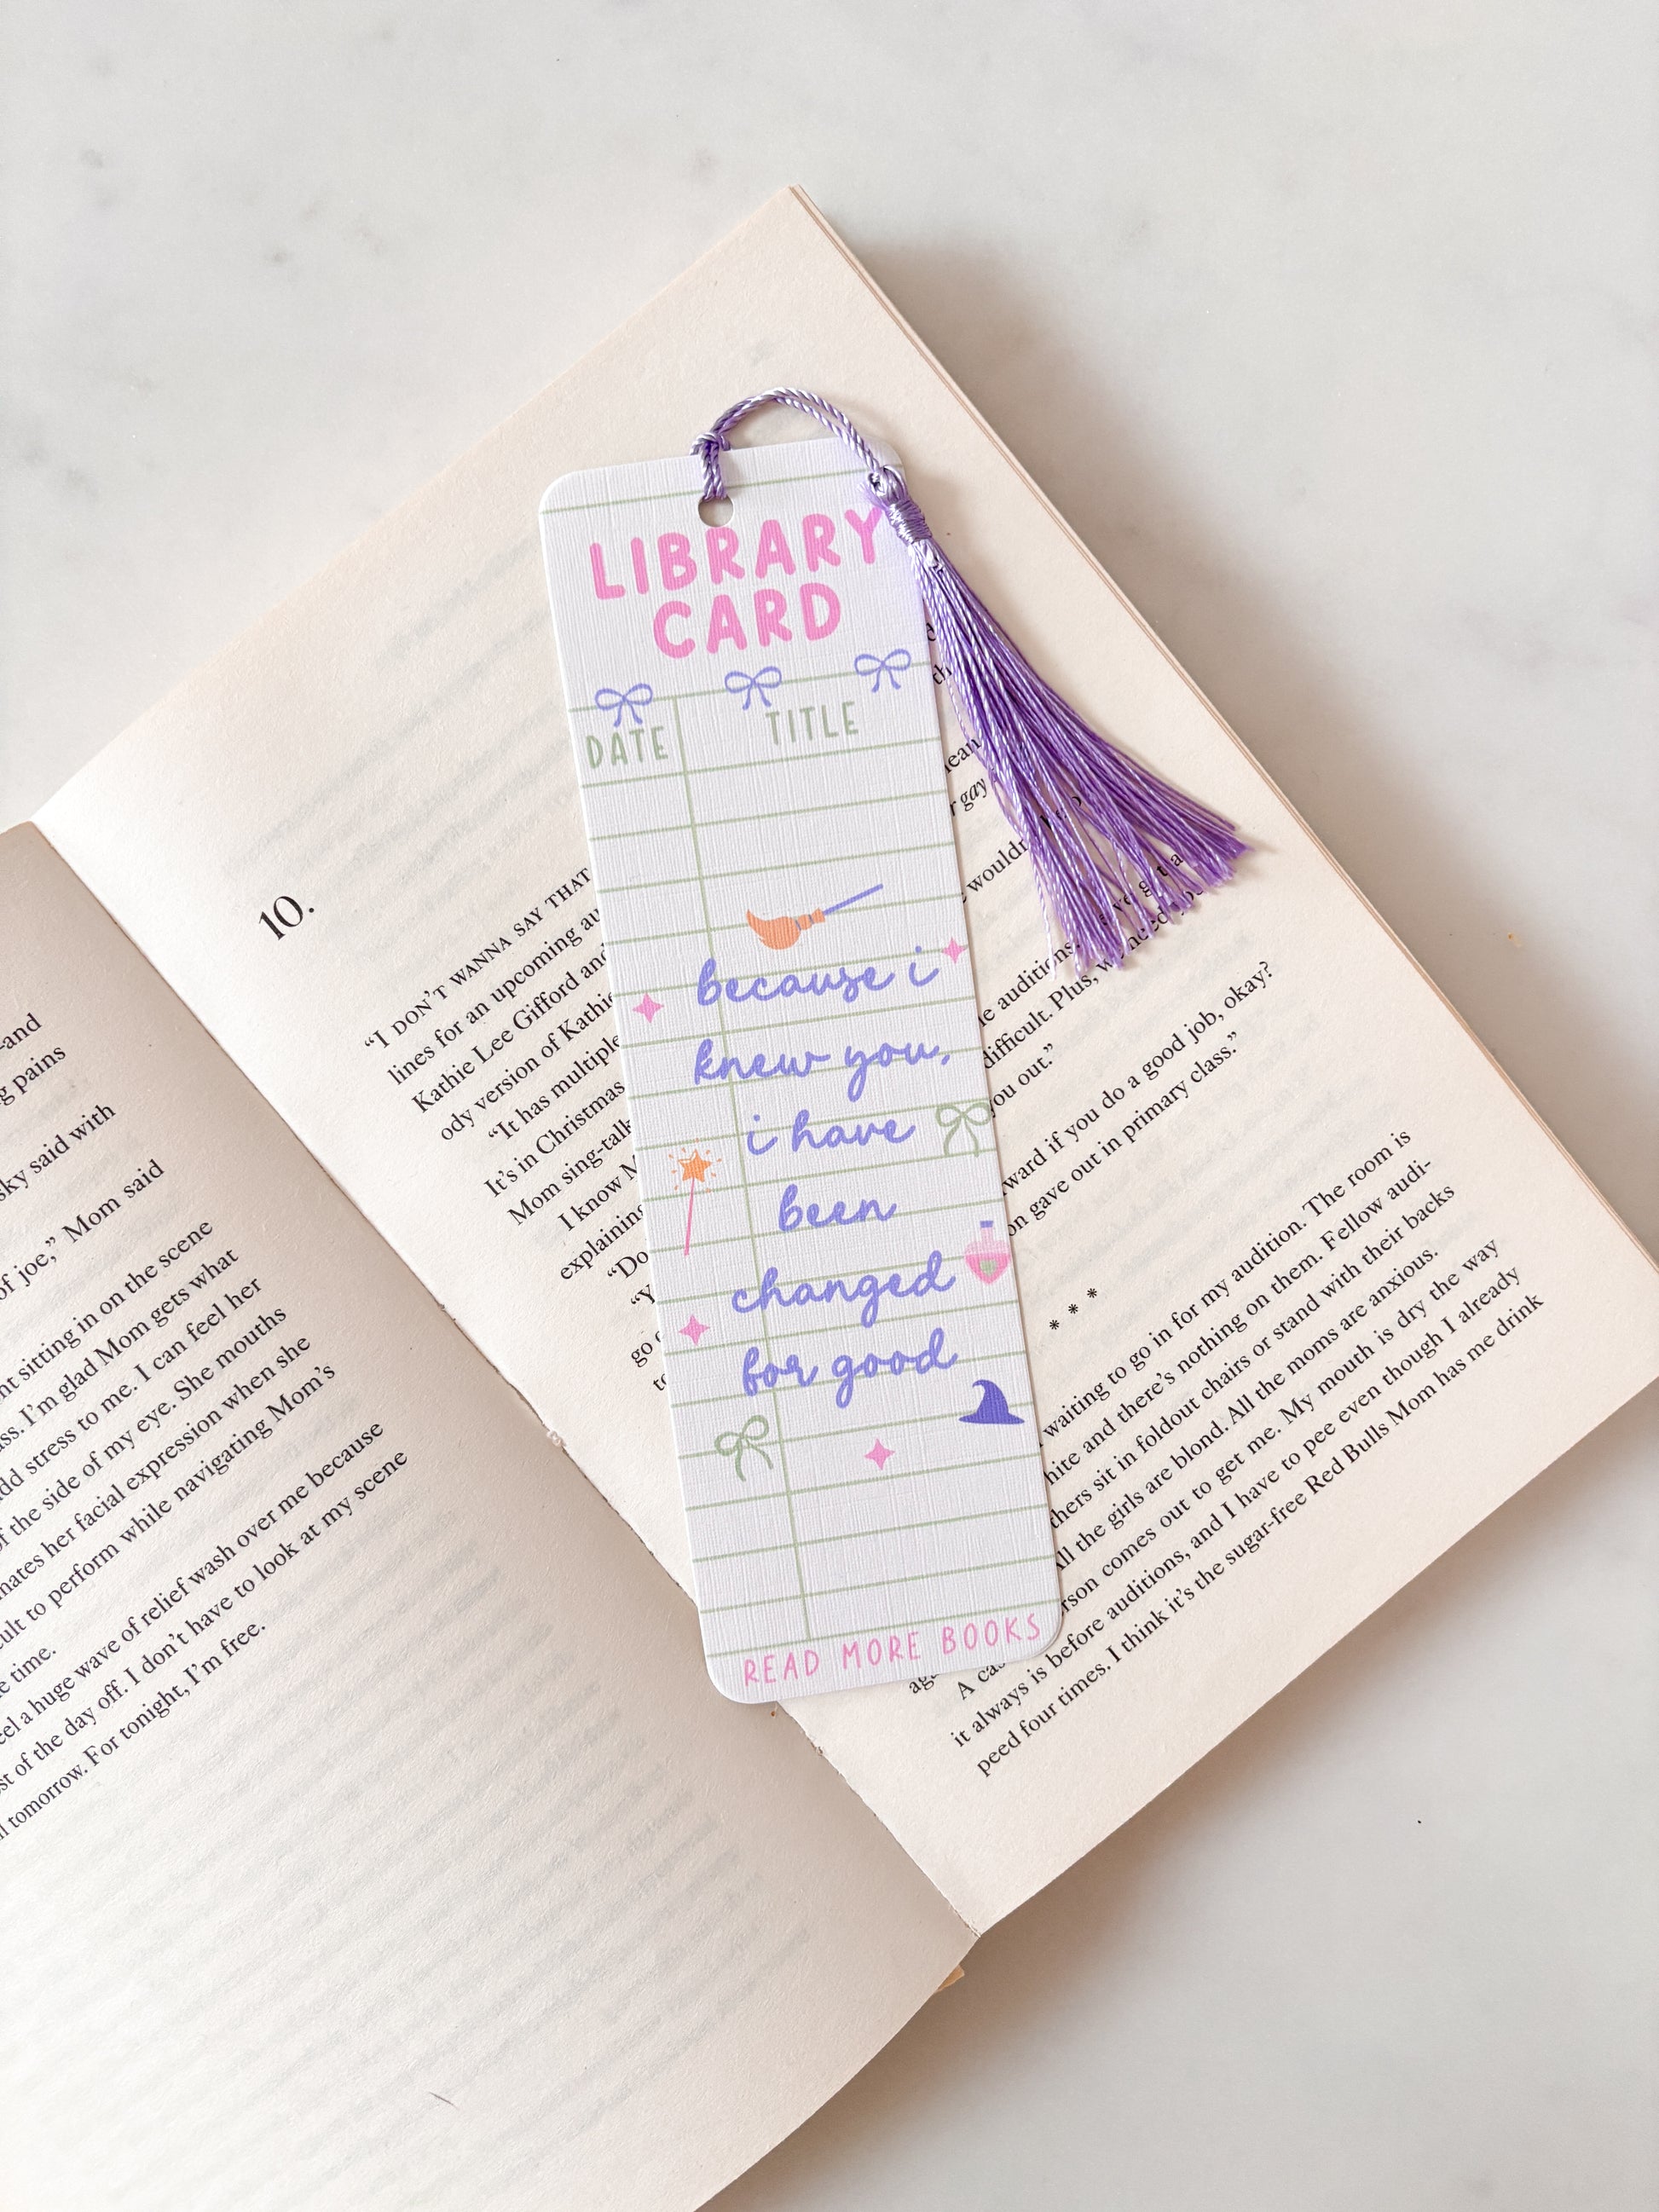 -and
g pains
sky said with
of joe,” Mom said
nt sitting in on the scene
ass. I’m glad Mom gets what
add stress to me. I can feel her
of the side of my eye. She mouths
nates her facial expression when she
cult to perform while navigating Mom’s
e time.
eel a huge wave of relief wash over me because
st of the day off. I don’t have to look at my scene
il tomorrow. For tonight, I’m free.
10.
“I DON’T WANNA SAY THAT
lines for an upcoming au
Kathie Lee Gifford and
ody version of Kathie
“It has multiple
It’s in Christmas
Mom sing-talk
I know M
explaining
“Do
“Y
go
to
LIBRARY
CARD
DATE TITLE
because i
knew you,
i have
been
changed
for good
READ MORE BOOKS
th
mean
r gay
e wouldn
le auditions.
difficult. Plus, w need
you out.”
ward if you do a good job, okay?
on gave out in primary class.”
* * *
waiting to go in for my audition. The room is
hite and there’s nothing on them. Fellow audi-
thers sit in foldout chairs or stand with their backs
All the girls are blond. All the moms are anxious.
erson comes out to get me. My mouth is dry the way
it always is before auditions, and I have to pee even though I already
peed four times. I think it’s the sugar-free Red Bulls Mom has me drink